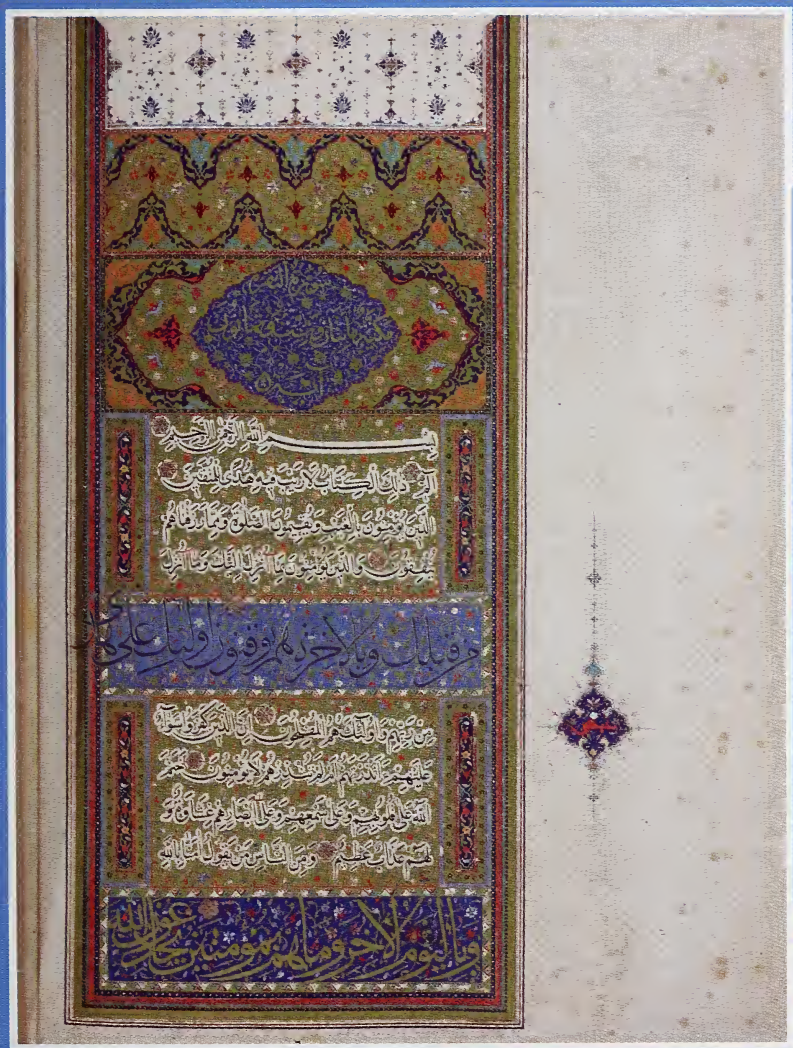 سورة
بسم الله الرحمن الرحيم
الم ذلك الكتاب لا ريب فيه هدى للمتقين
الذين يؤمنون بالغيب ويقيمون الصلوة ومما رزقناهم
ينفقون والذين يؤمنون بما انزل اليك وما انزل
من قبلك وبالاخرة هم يوقنون اولئك على هدى
من ربهم واولئك هم المفلحون ان الذين كفروا سواء
عليهم ءانذرتهم ام لم تنذرهم لا يؤمنون ختم
الله على قلوبهم وعلى سمعهم وعلى ابصارهم غشاوة و
لهم عذاب عظيم ومن الناس من يقول امنا بالله
وباليوم الاخر وما هم بمؤمنين يخادعون الله